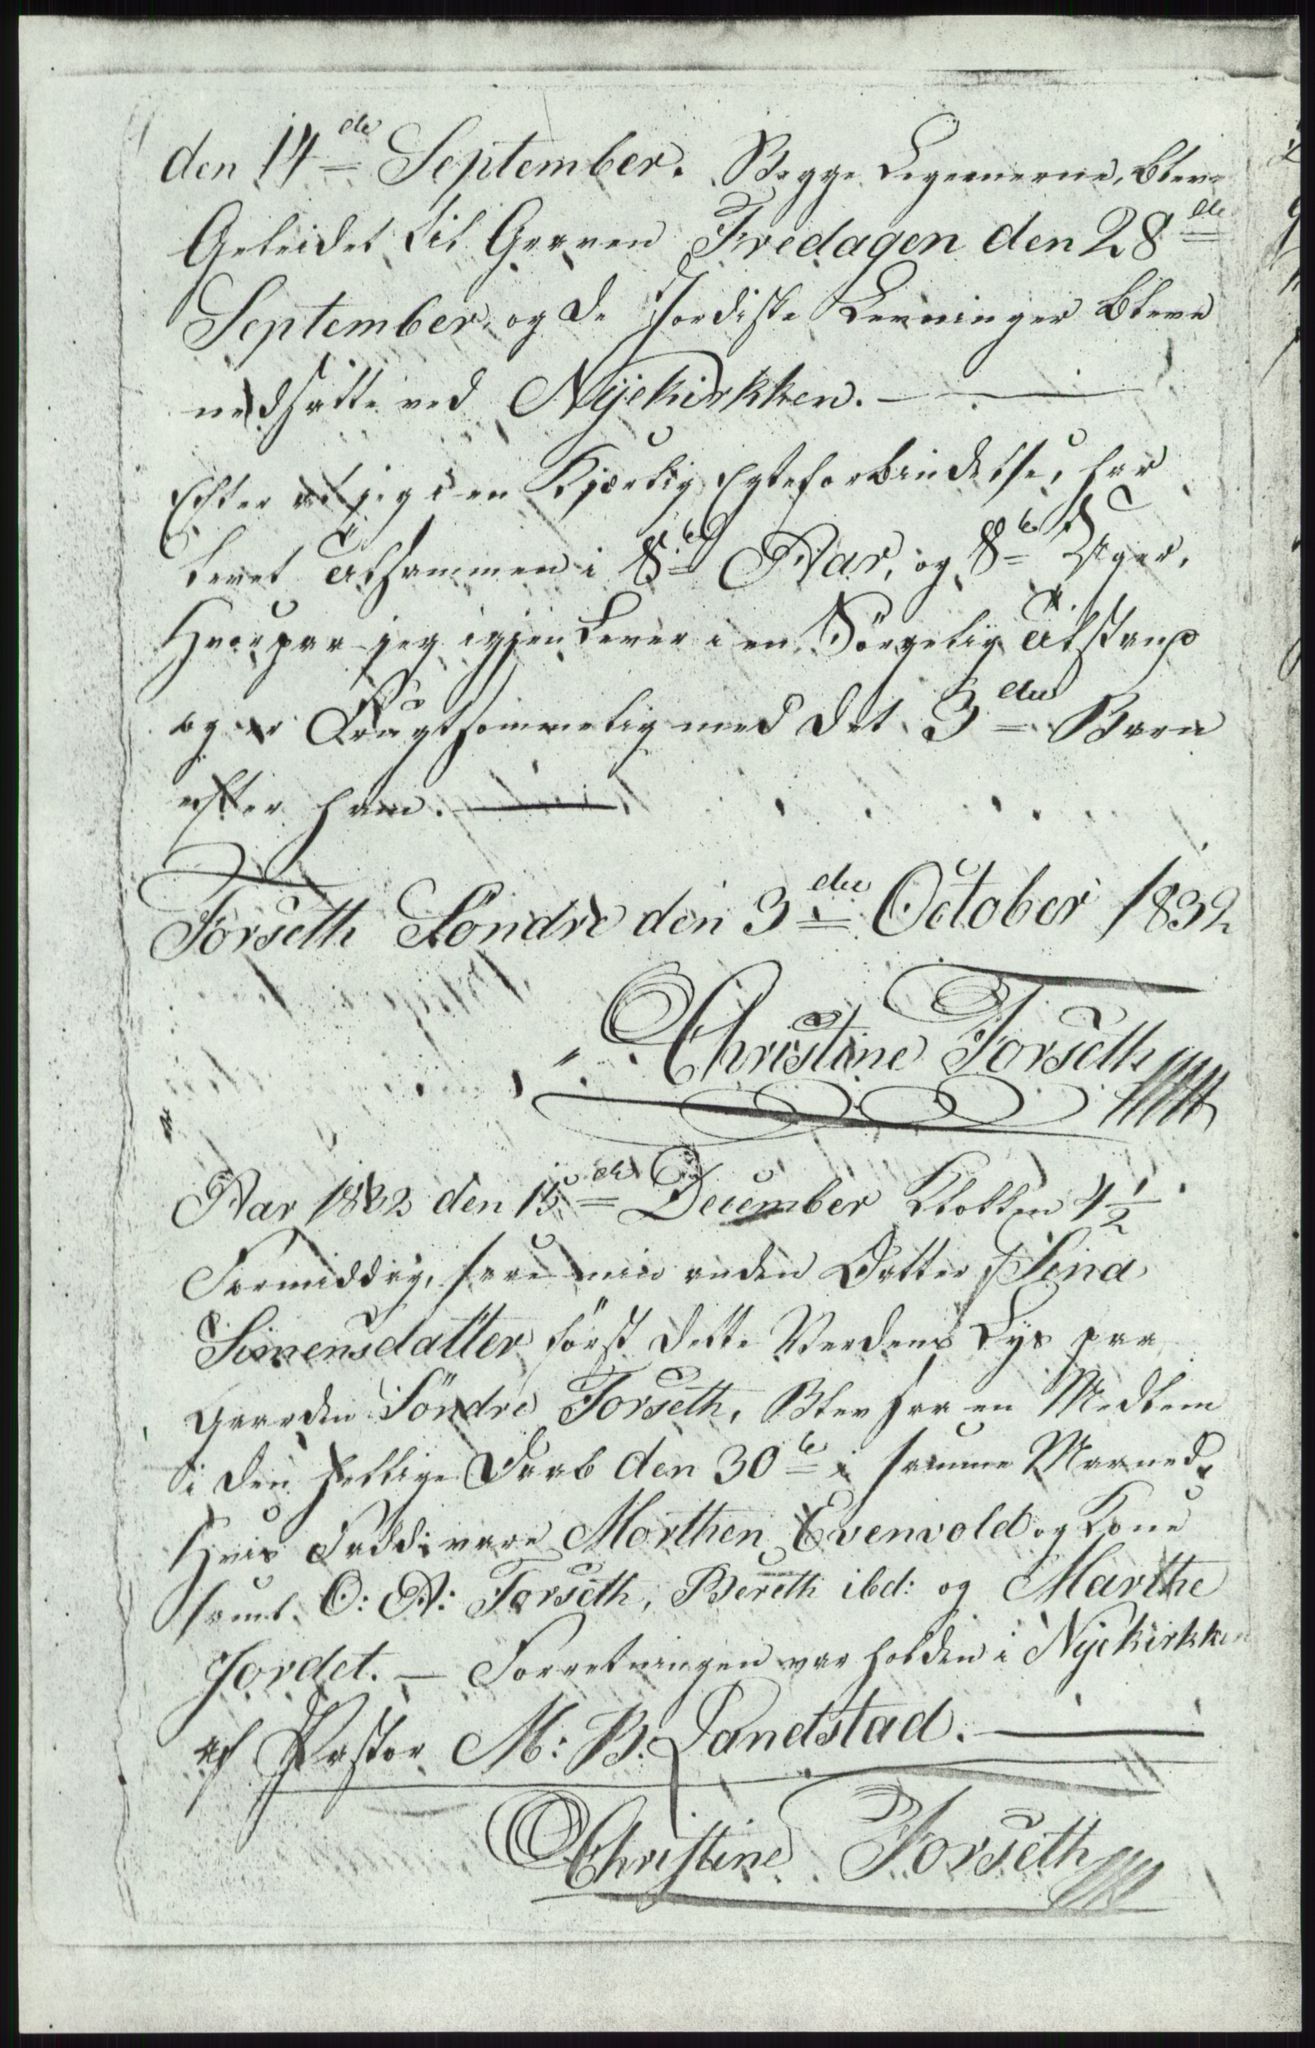 den 14de September. Begge Legemerne, bleve
Geleidet til Graven Fredagen den 28de
September, og de Jordiske Levninger bleve
nedsatte ved Nyekirkken. —
Efter at jeg i en Kjærlig Egteforbindelse, har
Levet tilsammen i 8te Aar, og 8te Uger,
Hvorpaa jeg igjen Lever i en Sörgelig
og er Frugtsommelig med det 3die Barn
efter ham. —
Forseth Söndre den 3die October 1832
Christine Forseth
Aar 1832 den 15de December Klokken 4 1/2
Formiddag, saae min anden Datter Sina
Simensdatter först dette Verdens Lys paa
gaarden Söndre Forseth, Blev saa en Medlem
i den hellige Daab den 30te i samme Maaned,
Hvis Faddere vare Morthen Evenvold og Kone
samt O: A: Forseth, Bereth ibd: og Marthe
Jordet. — Forretningen var holden i Nyekirkken
af Pastor M: B: Landstad. —
Christine Forseth